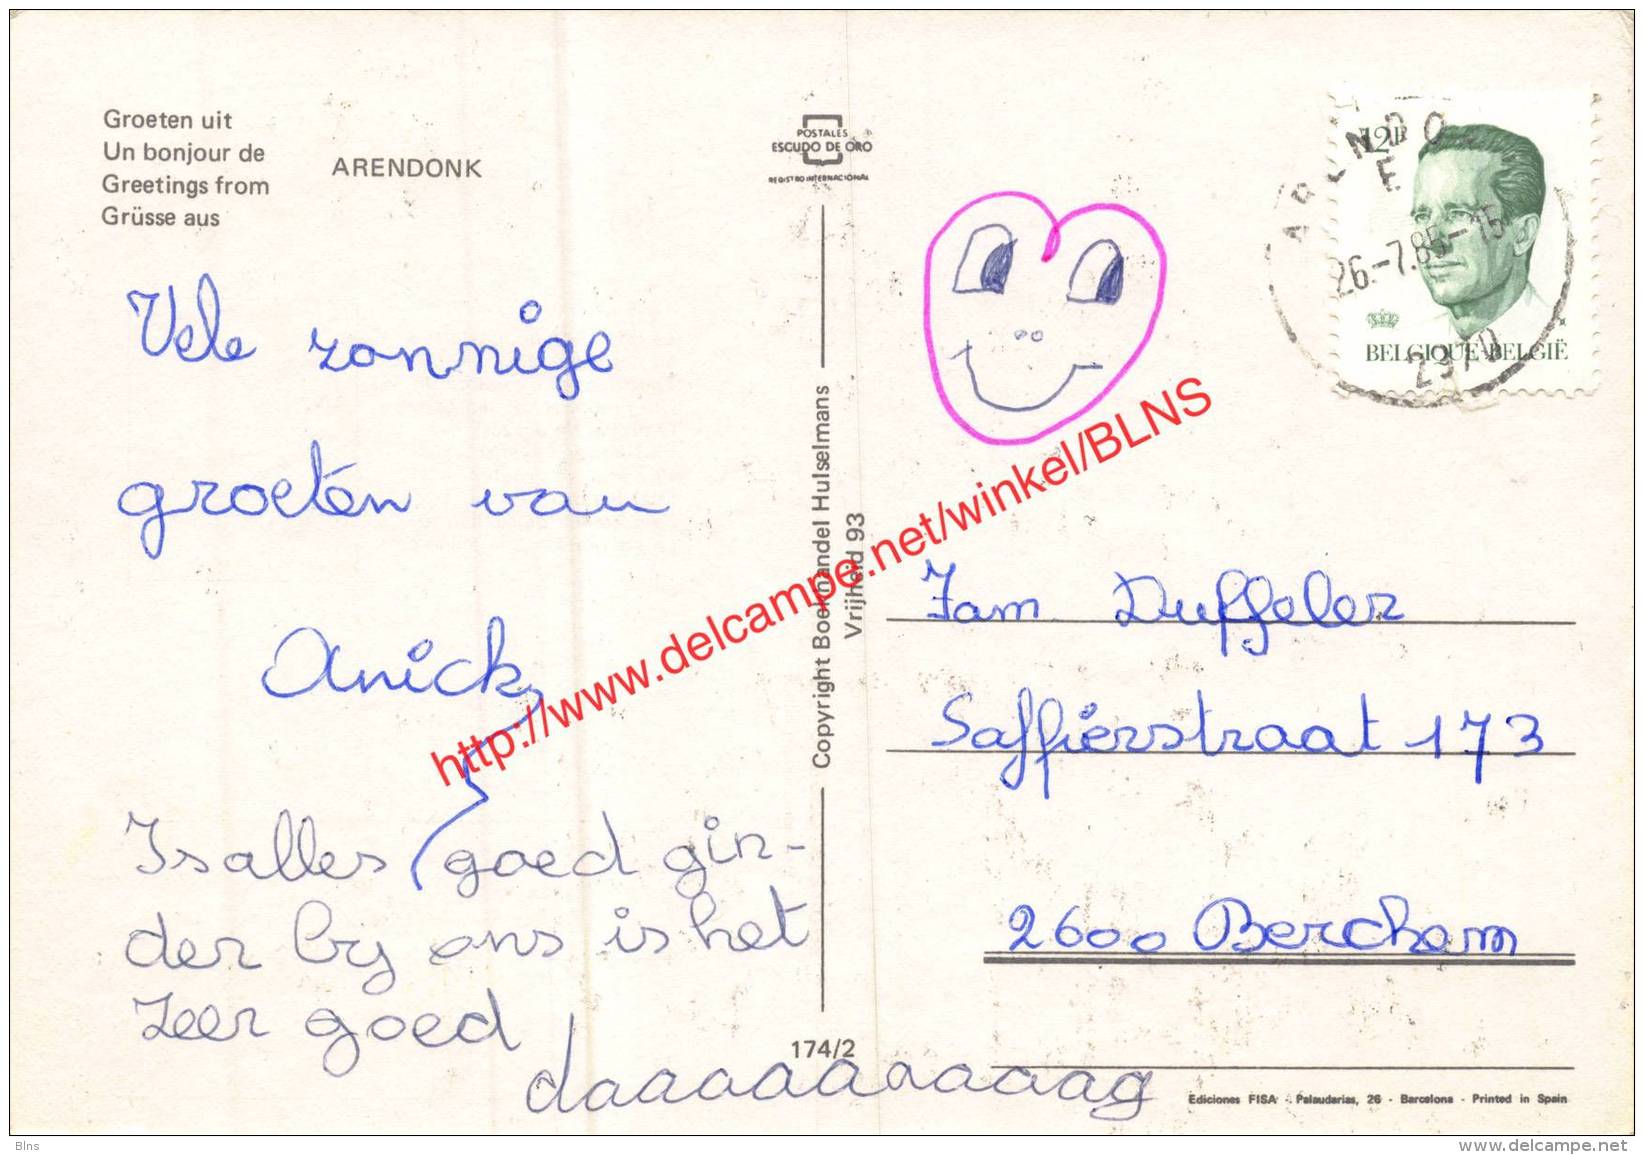 Groeten uit
Un bonjour de
Greetings from
Grüsse aus
ARENDONK
POSTALES
ESCUDO DE ORO
REGISTRO INTERNACIONAL
12F
BELGIQUE-BELGIË
26.-7.85-15
2370
Vele zonnige
groeten van
Anick
Is alles goed gin-
der by ons is het
zeer goed
daaaaaaaaaag
Copyright Boekhandel Hulselmans
Vrijheid 93
174/2
Fam Duffeler
Saffierstraat 173
2600 Berchem
Ediciones FISA - Palaudarias, 26 - Barcelona - Printed in Spain
http://www.delcampe.net/winkel/BLNS
Blns
www.delcampe.net